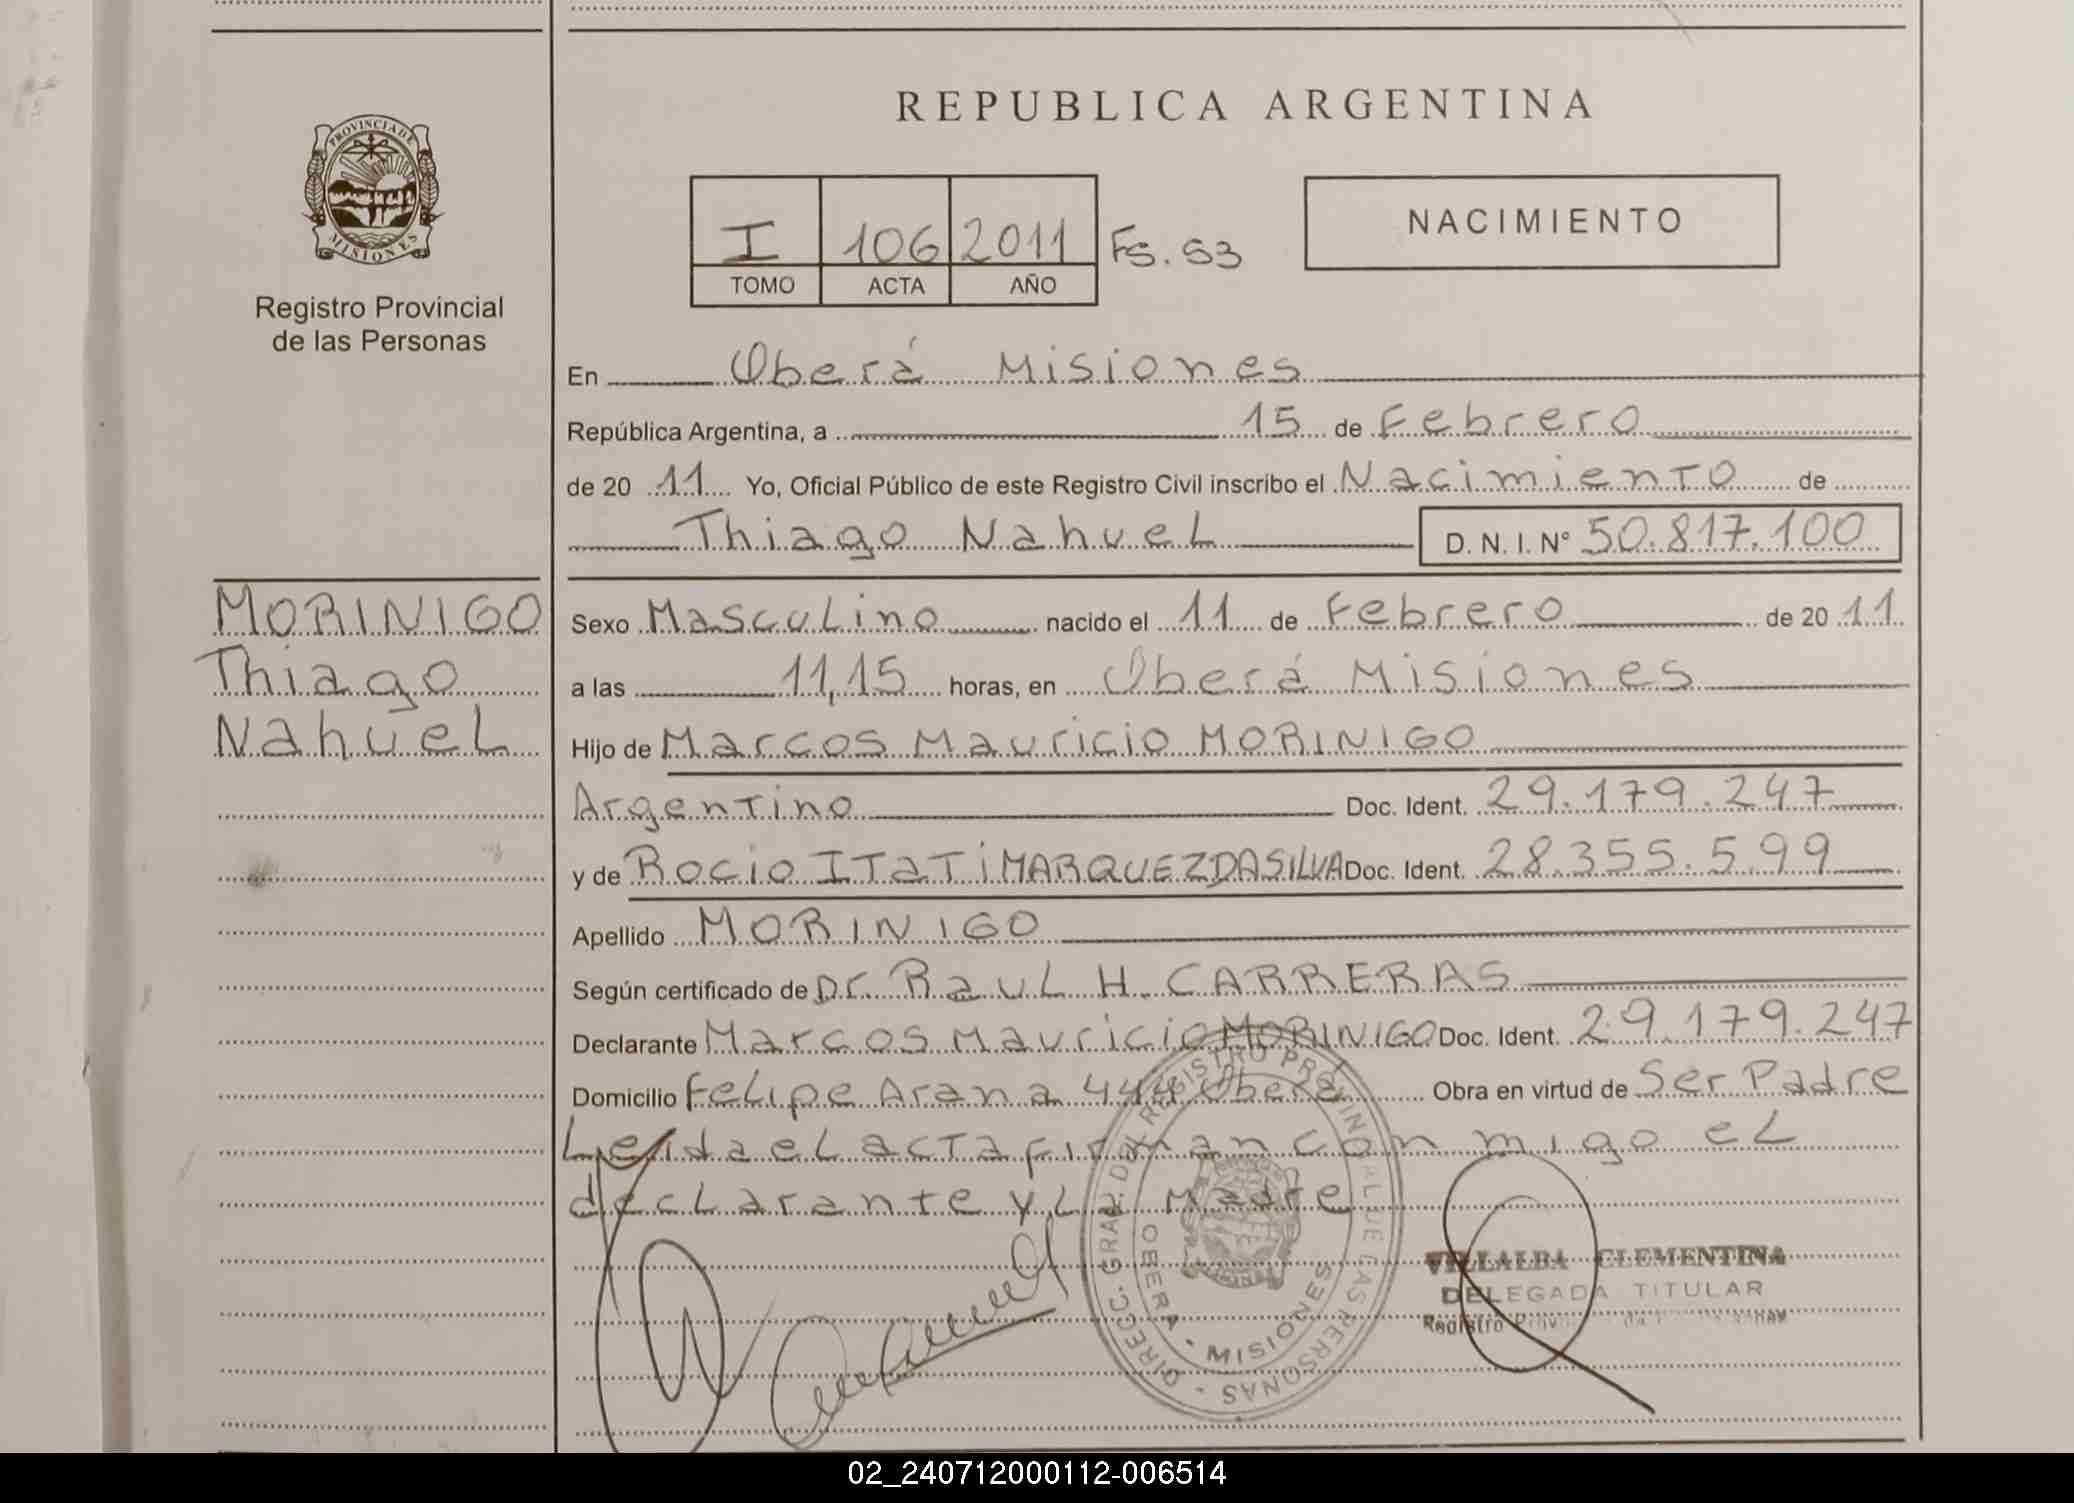 REPUBLICA ARGENTINA
PROVINCIA DE
MISIONES
Registro Provincial
de las Personas
I 106 2011 Fs. 53
TOMO ACTA AÑO
NACIMIENTO
En Oberá Misiones
República Argentina, a 15 de Febrero
de 20 11 Yo, Oficial Público de este Registro Civil inscribo el Nacimiento de
Thiago Nahuel D. N. I. N° 50.817.100
MORINIGO
Thiago
Nahuel
Sexo Masculino nacido el 11 de Febrero de 20 11
a las 11,15 horas, en Oberá Misiones
Hijo de Marcos Mauricio MORINIGO
Argentino Doc. Ident. 29.179.247
y de Rocio ITaTi MARQUEZ DA SILVA Doc. Ident. 28.355.599
Apellido MORINIGO
Según certificado de Dr. Raul H. CARRERAS
Declarante Marcos Mauricio MORINIGO Doc. Ident. 29.179.247
Domicilio Felipe Arana 444 Oberá Obra en virtud de Ser Padre
Leida el acta firman con migo el
declarante y La Madre
DIRECC. GRAL. DEL REGISTRO PROVINCIAL DE LAS PERSONAS
OBERA - MISIONES
VILLALBA CLEMENTINA
DELEGADA TITULAR
Registro
02_240712000112-006514